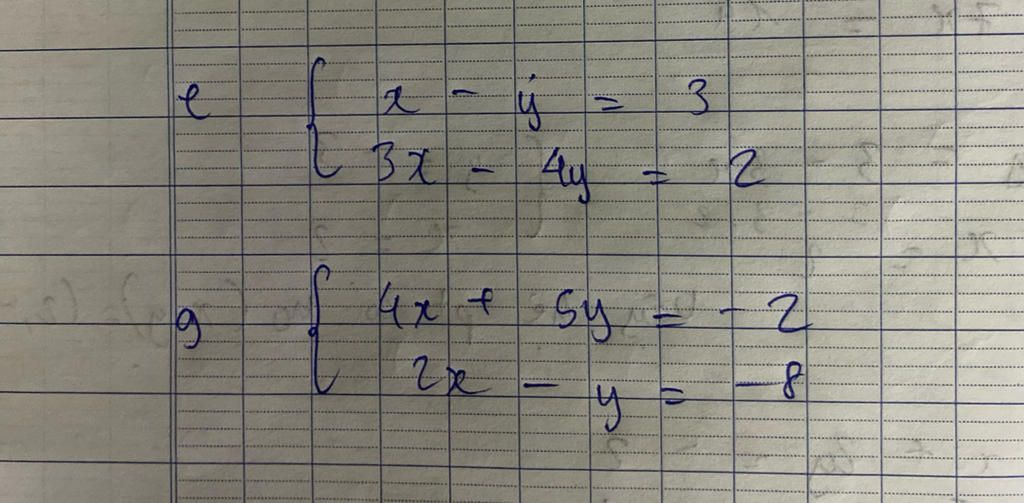 e { x - y = 3
3x - 4y = 2
g { 4x + 5y = - 2
2x - y = - 8